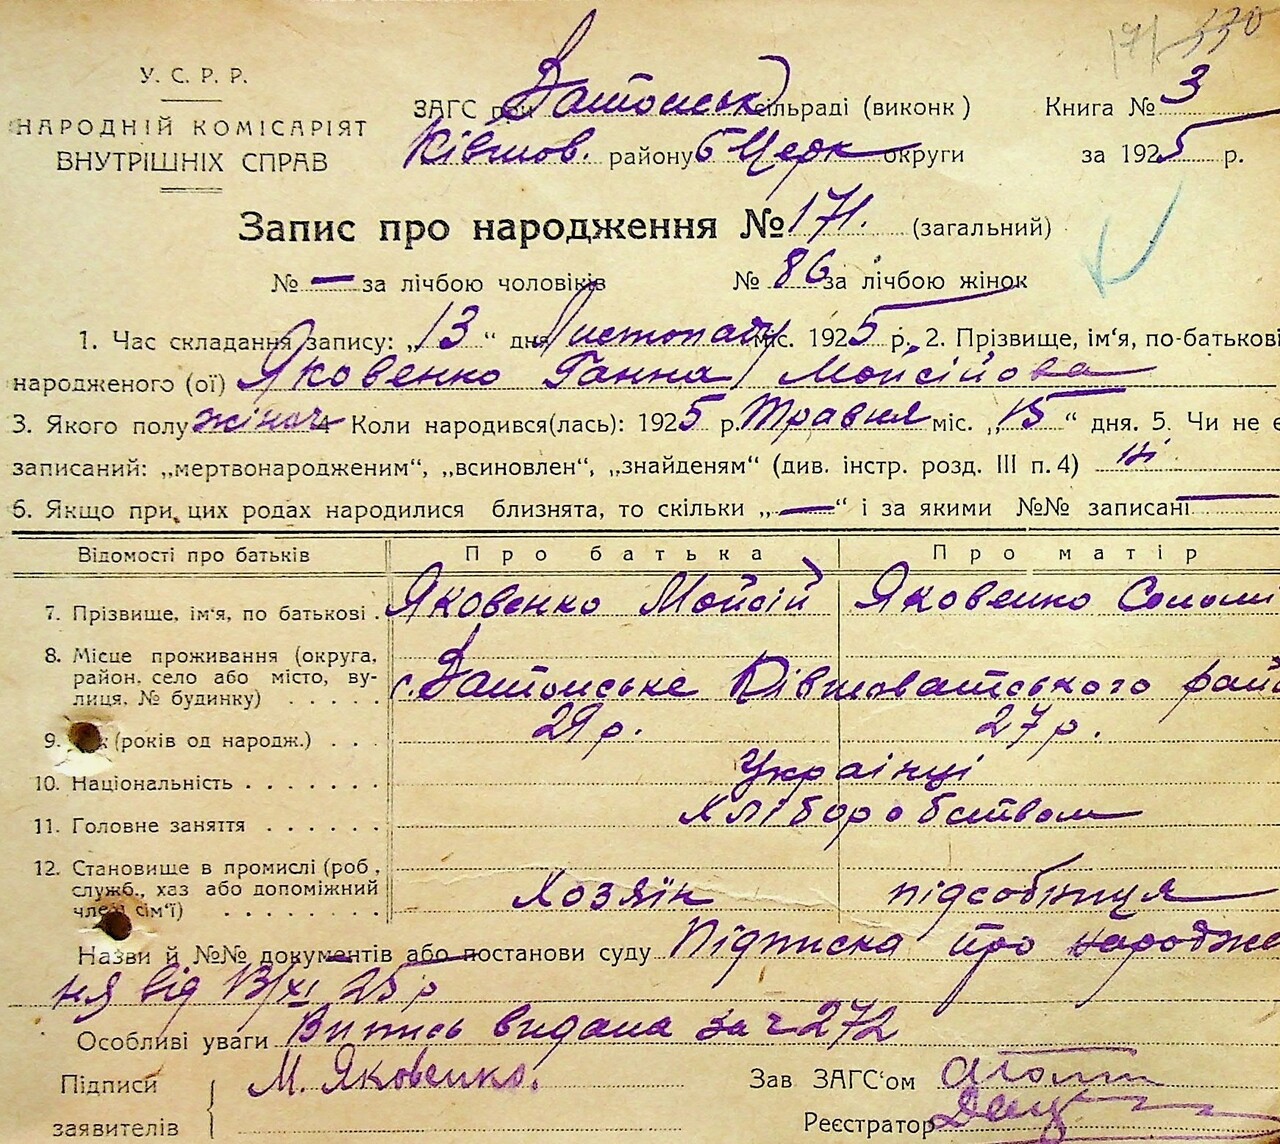 171 330
У. С. Р. Р.
НАРОДНІЙ КОМІСАРІЯТ
ВНУТРІШНІХ СПРАВ
ЗАГС при сільраді (виконк) Книга № 3
Ківшов. району Б Церк округи за 1925 р.
Запис про народження № 171. (загальний)
№ — за лічбою чоловіків № 86 за лічбою жінок
1. Час складання запису: „13“ дня Листопаду міс. 1925 р. 2. Прізвище, ім'я, по-батькові
народженого (ої) Яковенко Ганна Мойсійова
3. Якого полу жіноч 4 Коли народився(лась): 1925 р. Травня міс. „15“ дня. 5. Чи не є
записаний: „мертвонародженим“, „всиновлен“, „знайденям“ (див. інстр. розд. III п. 4) ні
6. Якщо при цих родах народилися близнята, то скільки „—“ і за якими №№ записані —
Відомості про батьків Про батька Про матір
7. Прізвище, ім'я, по батькові. Яковенко Мойсій Яковенко Соломи
8. Місце проживання (округа, район, село або місто, вулиця, № будинку) . . . . . с. Ківшоватського рай
9. (років од народж.) . . . 29 р. 27 р.
10. Національність . . . . . . . Українці
11. Головне заняття . . . . . . Хліборобством
12. Становище в промислі (роб, служб., хаз або допоміжний член сім'ї) . . . . . . . . Хозяїн підсобниця
Назви й №№ документів або постанови суду Підписка про народже
ня від 13/XI 25 р
Особливі уваги Витись видана за ч 272
Підписи М. Яковенко. Зав ЗАГС'ом
заявителів Реєстратор